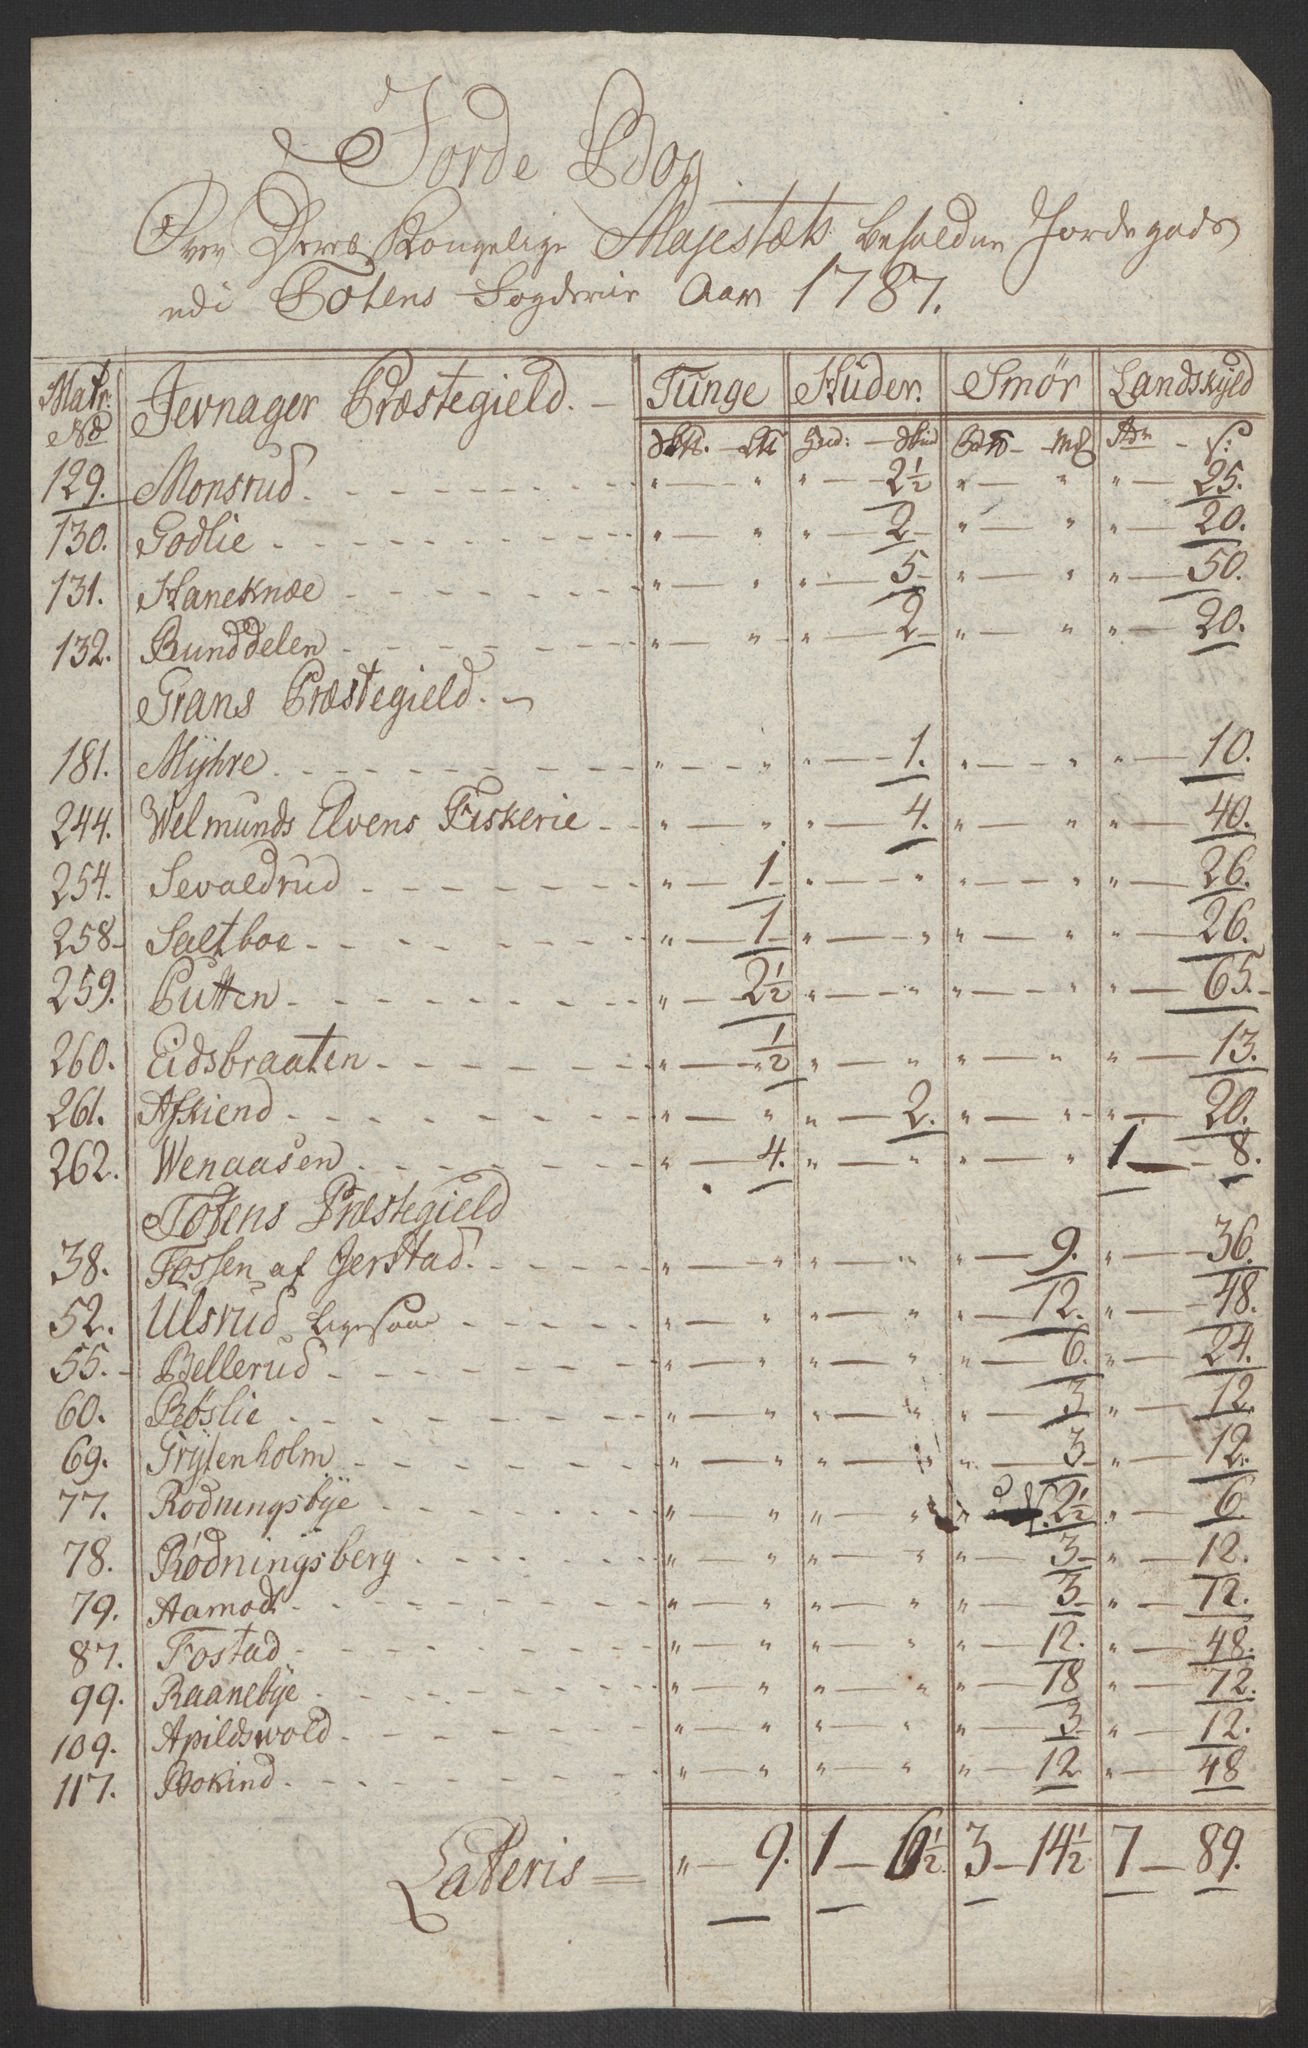 Jorde Bog
Over Deres Kongelige Majestæts beholdne Jordegods
udi Totens Fogderie Aar 1787.
Matr: No Jevnager Præstegield. Tunge Huder. Smør Landskyld
Hud: Skind Rdr S:
129. Monsrud. " " " 2½ " " " 25.
130. Godlie " " " 2 " " " 20.
131. Haneknæe " " " 5 " " " 50.
132. Runddelen " " " 2 " " " 20.
Grans Præstegield.
181. Myhre " " " 1. " " " 10.
244. Welmunds Elvens Fiskerie " " " 4. " " " 40.
254. Sevaldrud " 1 " " " " " 26.
258 Saltboe " 1 " " " " " 26.
259. Putten " 2½ " " " " " 65.
260. Eidsbraaten " ½ " " " " " 13.
261. Askiend " " " 2. " " " 20.
262. Wenaasen " 4. " " " " 1 8.
Totens Præstegield
38. Fossen af Jerstad. " " " " " 9. " 36.
52. Ulsrud Ligesaa " " " " " 12. " 48.
55. Bellerud " " " " " 6. " 24.
60. Røslie " " " " " 3 " 12.
69. Grytenholm " " " " " 3 " 12.
77. Rodningsbye " " " " " 2½ " 6
78. Rødningsberg " " " " " 3 " 12.
79. Aamodt " " " " " 3 " 12.
87. Fostad " " " " " 12. " 48.
99. Raanebye " " " " " 18 " 72.
109. Apildswold " " " " " 3 " 12.
117. Bokind " " " " " 12 " 48
Lateris " 9. 1 6½ 3 14½ 7 89.